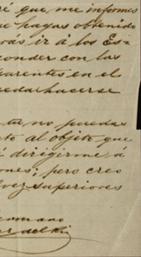 ré que me informes
e hayas obtenido
vás ir á los Es-
conder con las
parentes en el
pueda hacerse
ta no puedas
to al objeto que
á dirigirme á
ones; pero creo
vez superiores
ermano